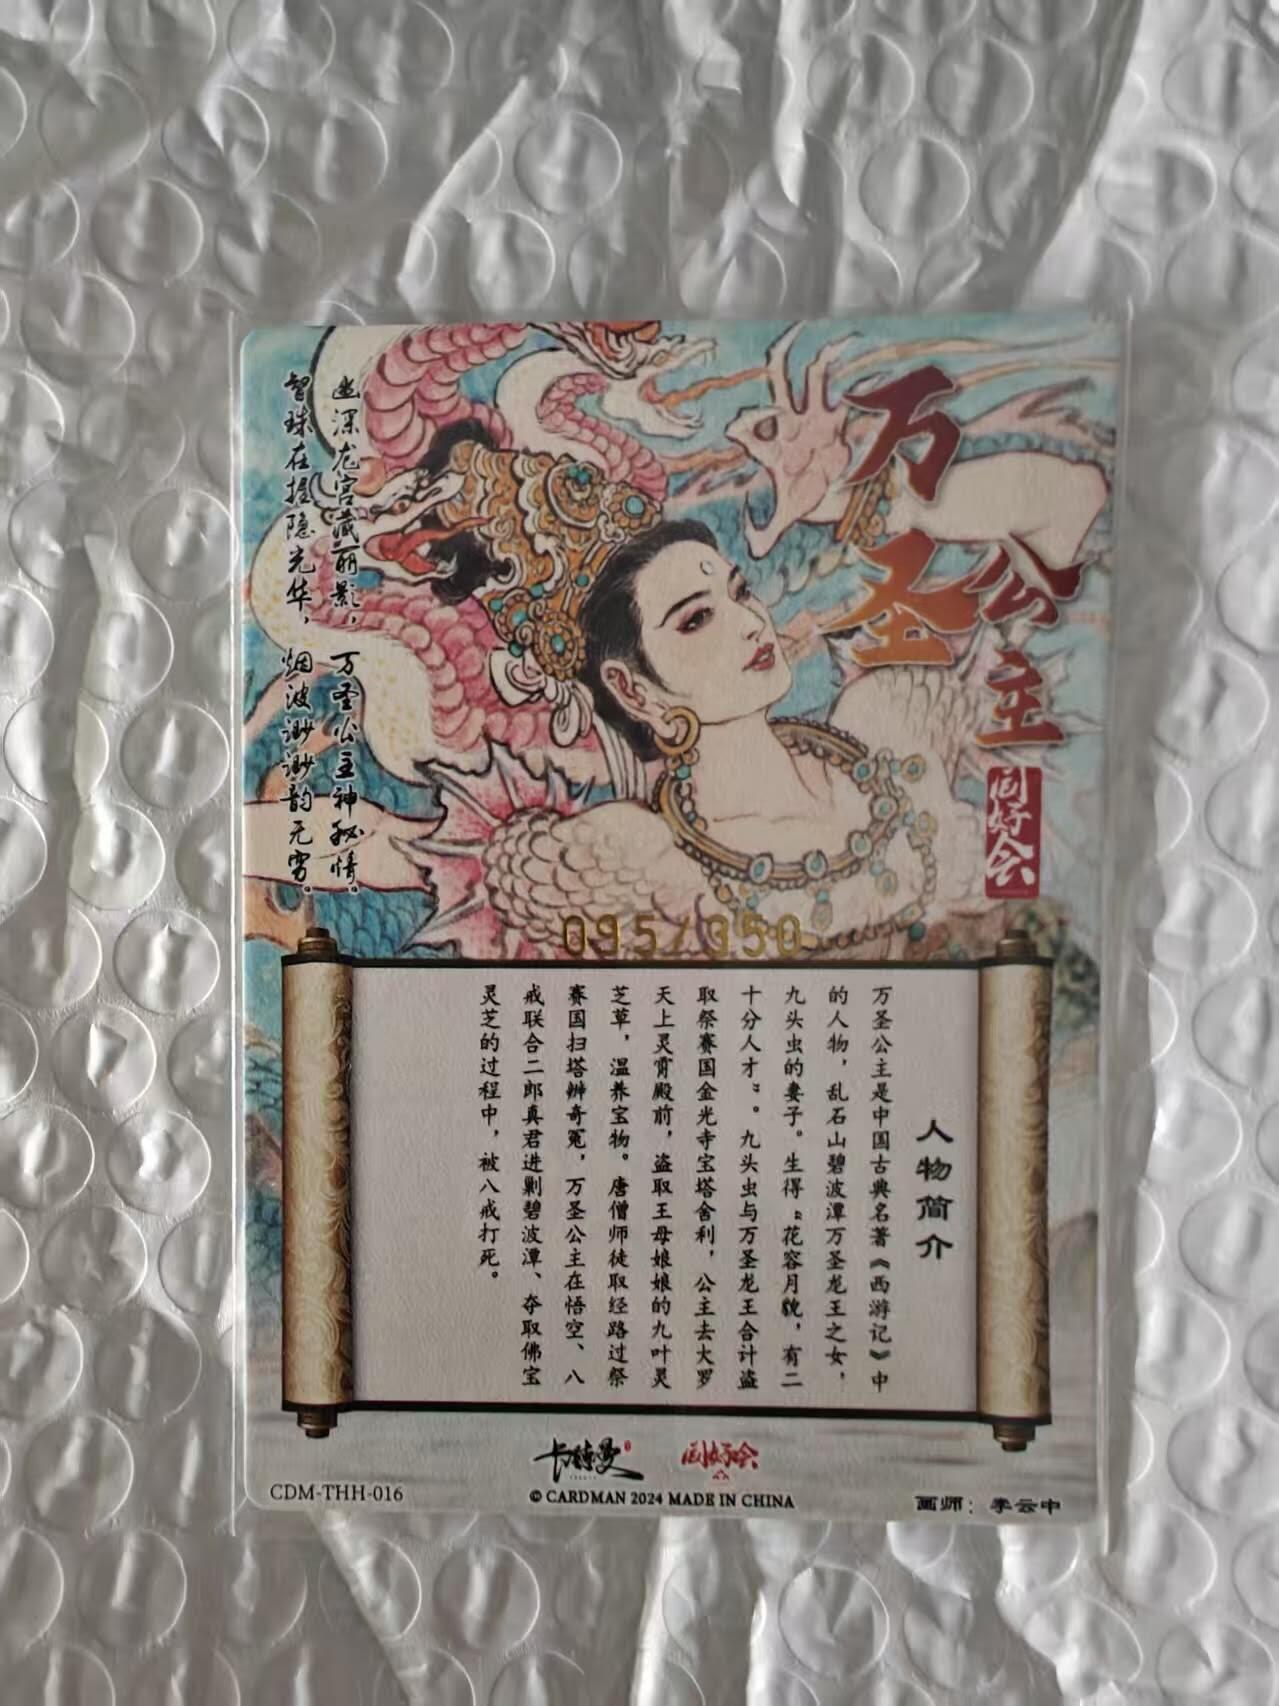 万圣
公主
同好会
幽深龙宫藏丽影，万圣公主神秘情。
智珠在握隐光华，烟波渺渺韵无穷。
095/350
人物简介
万圣公主是中国古典名著《西游记》中
的人物，乱石山碧波潭万圣龙王之女，
九头虫的妻子。生得“花容月貌，有二
十分人才”。九头虫与万圣龙王合计盗
取祭赛国金光寺宝塔舍利，公主去大罗
天上灵霄殿前，盗取王母娘娘的九叶灵
芝草，温养宝物。唐僧师徒取经路过祭
赛国扫塔辨奇冤，万圣公主在悟空、八
戒联合二郎真君进剿碧波潭、夺取佛宝
灵芝的过程中，被八戒打死。
卡德曼 同好会
CDM-THH-016
© CARDMAN 2024 MADE IN CHINA
画师：李云中